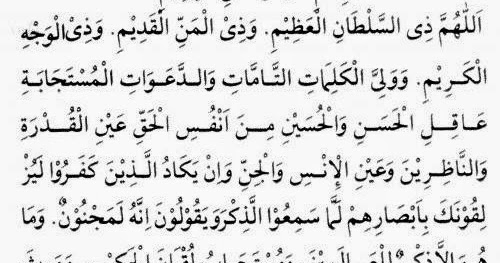 اَللّٰهُمَّ ذِى السُّلْطَانِ الْعَظِيْمِ. وَذِى الْمَنِّ الْقَدِيْمِ. وَذِى الْوَجْهِ
الْكَرِيْمِ. وَوَلِيِّ الْكَلِمَاتِ التَّامَّاتِ وَالدَّعَوَاتِ الْمُسْتَجَابَةِ
عَاقِلِ الْحَسَنِ وَالْحُسَيْنِ مِنَ اَنْفُسِ الْحَقِّ عَيْنِ الْقُدْرَةِ
وَالنَّاظِرِيْنَ وَعَيْنِ الْاِنْسِ وَالْجِنِّ وَاِنْ يَكَادُ الَّذِيْنَ كَفَرُوْا لَيُزْ
لِقُوْنَكَ بِاَبْصَارِهِمْ لَمَّا سَمِعُوْا الذِّكْرَ وَيَقُوْلُوْنَ اِنَّهُ لَمَجْنُوْنٌ. وَمَا